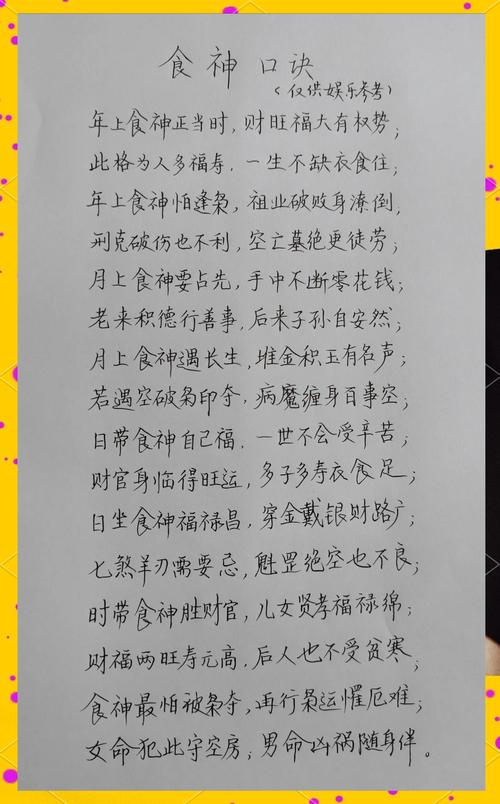 食神口诀
(仅供娱乐参考)
年上食神正当时,财旺福大有权势;
此格为人多福寿,一生不缺衣食住;
年上食神怕逢枭,祖业破败身潦倒,
刑克破伤也不利,空亡墓绝更徒劳;
月上食神要占先,手中不断零花钱;
老来积德行善事,后来子孙自安然;
月上食神遇长生,堆金积玉有名声;
若遇空破枭印夺,病魔缠身百事空;
日带食神自己福,一世不会受辛苦;
财官身临得旺运,多子多寿衣食足;
日坐食神福禄昌,穿金戴银财路广;
七煞羊刃需要忌,魁罡绝空也不良;
时带食神胜财官,儿女贤孝福禄绵;
财福两旺寿元高,后人也不受贫寒;
食神最怕被枭夺,再行枭运懼厄难;
女命犯此守空房;男命凶祸随身伴。